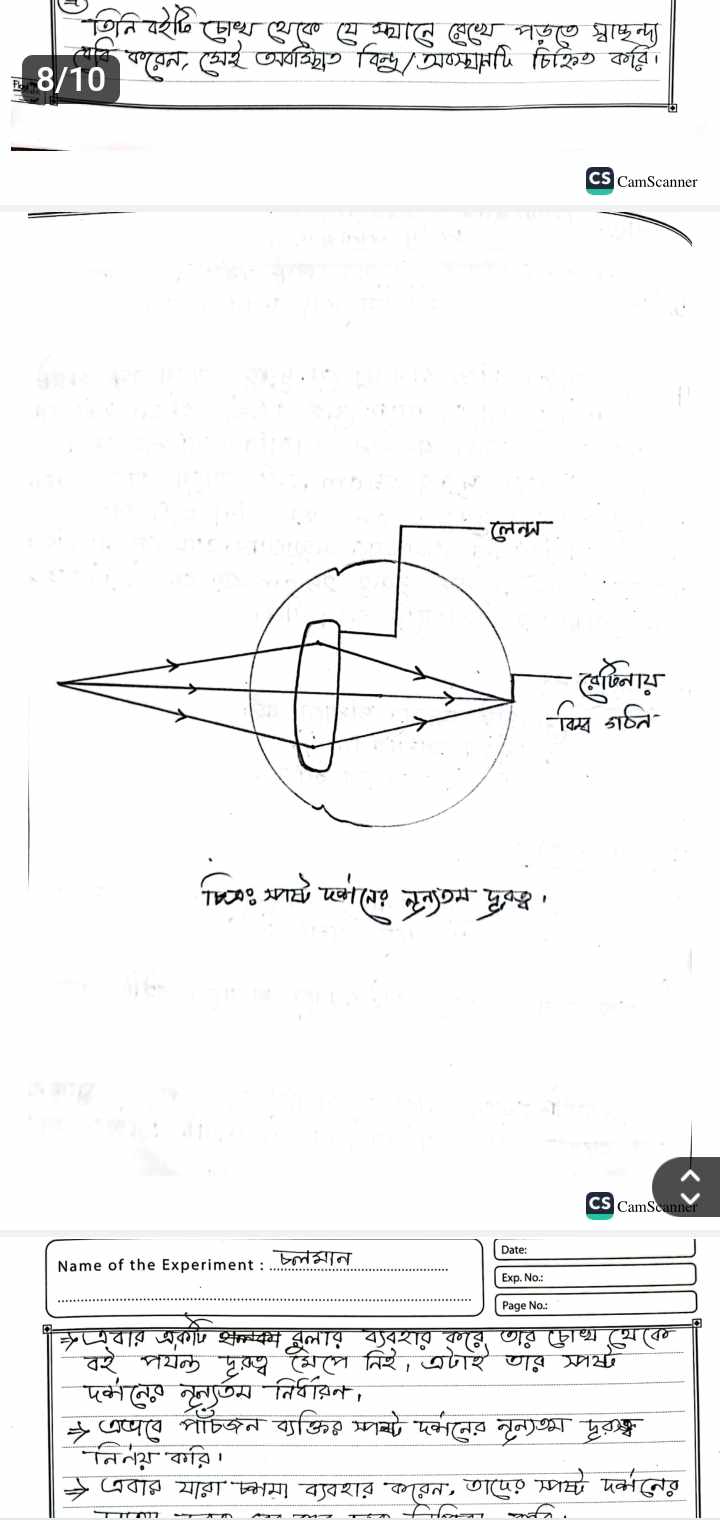 তিনি বইটি চোখ থেকে যে স্থানে রেখে পড়তে স্বাচ্ছন্দ্য
বোধ করেন, সেই অবস্থিত বিন্দু/অবস্থানটি চিহ্নিত করি।
8/10
CS CamScanner
লেন্স
রেটিনায়
বিম্ব গঠন
চিত্রঃ স্পষ্ট দর্শনের নূন্যতম দূরত্ব।
CS CamScanner
Name of the Experiment : চলমান
Date:
Exp. No.:
Page No.:
⇒ এবার একটি রুলার ব্যবহার করে তার চোখ থেকে
বই পর্যন্ত দূরত্ব মেপে নিই, এটাই তার স্পষ্ট
দর্শনের নূন্যতম নির্ধারন,
⇒ এভাবে পাঁচজন ব্যক্তির স্পষ্ট দর্শনের নূন্যতম দূরত্ব
নির্নয় করি।
⇒ এবার যারা চশমা ব্যবহার করেন, তাদের স্পষ্ট দর্শনের